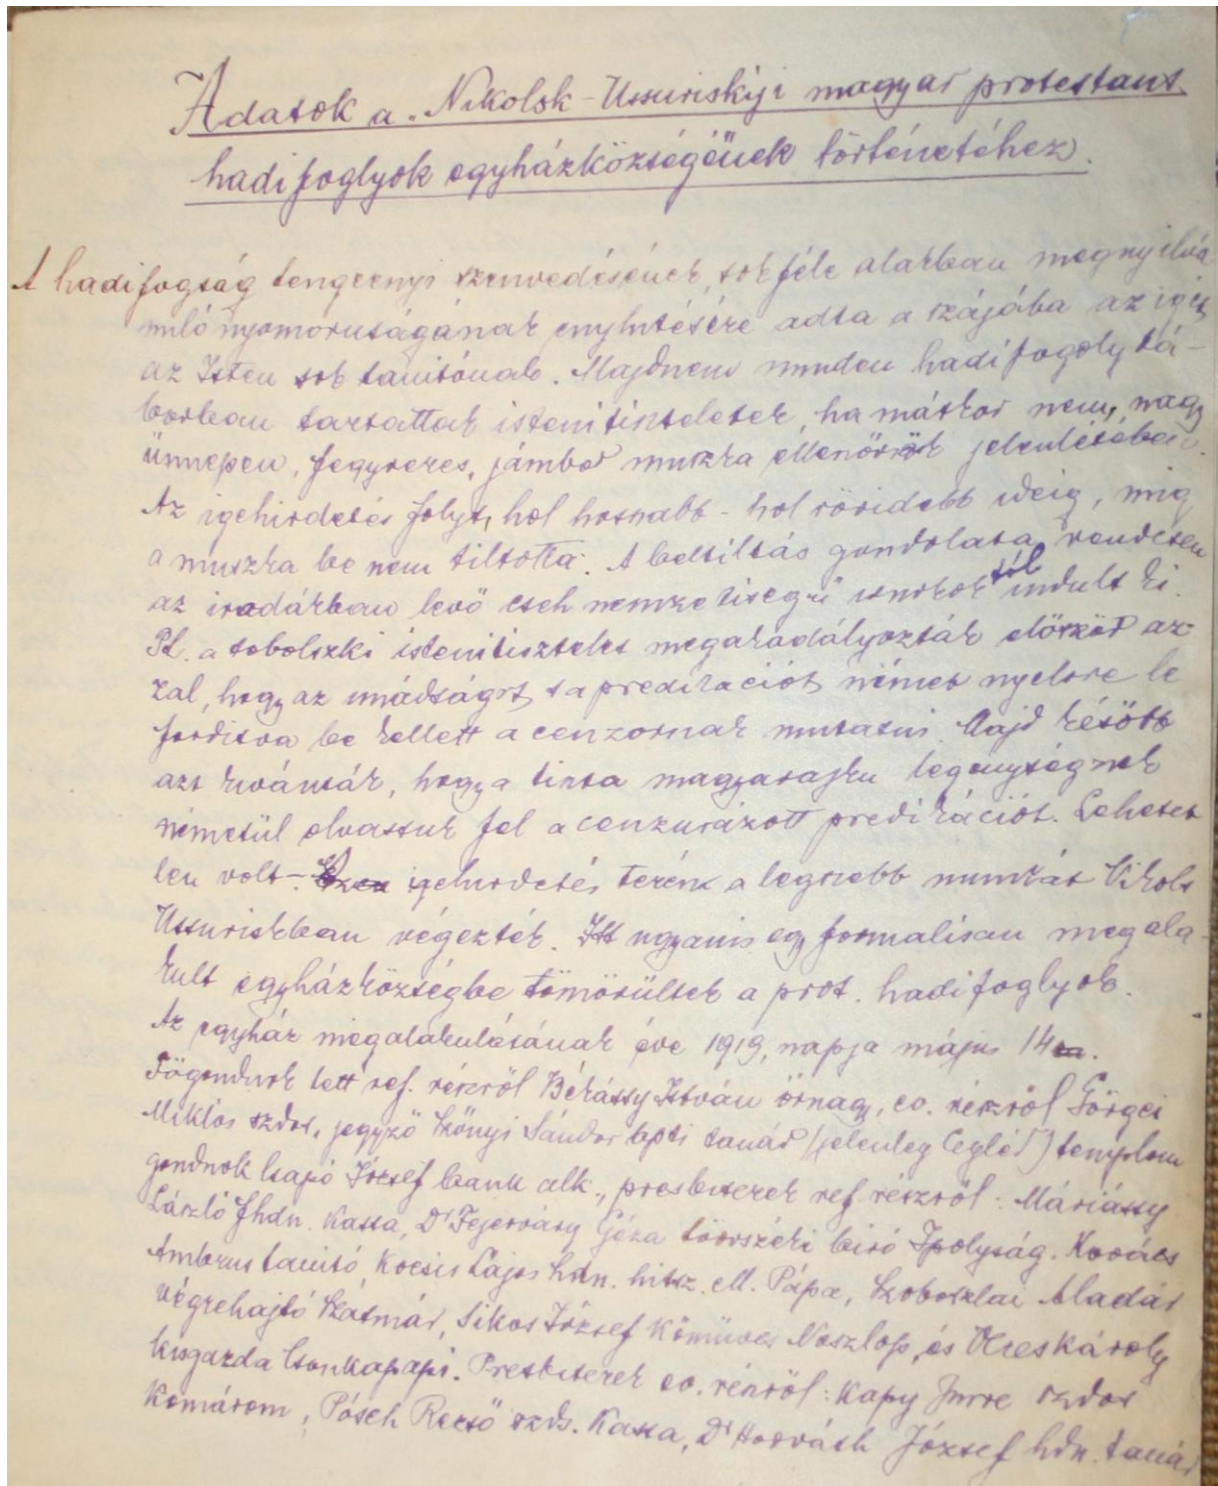 Adatok a „Nikolsk-Ussuriskiji magyar protestans
hadifoglyok egyházközségének történetéhez.
A hadifogság tengernyi szenvedésének, sokféle alakban megnyilvá
nuló nyomoruságának enyhitésére adta a szájába az igét
az Isten sok tanitónak. Majdnem minden hadifogoly tá-
borban tartottak istenitiszteletek, ha máskor nem, nagy
ünnepen, fegyveres, jámbor muszka ellenőrök jelenlétében.
Az igehirdetés folyt, hol hosszabb - hol rövidebb ideig, mig
a muszka be nem tiltotta. A betiltás gondolata rendesen
az irodákban levő cseh nemzetiségü isnokoktól indult ki.
Pl. a tobolszki istenitisztelet megakadályozták először az-
zal, hogy az imádságot s a predikációt német nyelvre le
forditva be kellett a cenzornak mutatni. Majd később
azt kivánták, hogy a tiszta magyarajku legénységnek
németül olvassuk fel a cenzurázott predikációt. Lehetet
len volt. - igehirdetés terén a legszebb munkát Nikolsk
Ussuriskban végezték. Itt ugyanis egy formalisan megala-
kult egyházközségbe tömörültek a prot. hadifoglyok.
Az egyház megalakulásának éve 1919, napja május 14.
Főgondnok lett ref. részről Békássy István őrnagy, ev. részről Görgei
Miklós szds, jegyző Szőnyi Sándor bpti tanár (jelenleg Cegléd) templom
gondnok Csapó József bank alk., presbiterek ref részről: Máriássy
László fhdn. Kassa, Dr Fejérváry Géza törvszéki biró Ipolyság. Kovács
Ambrus tanitó, Kocsis Lajos hdn. hitsz. ell. Pápa, Szoboszlai Aladár
végrehajtó Szatmár, Sikos József Kőmüves Noszlop, és Károly
kisgazda Csonkapapi. Presbiterek ev. részről: Kapy Imre szds
Komárom, Pósch Rezső szds. Kassa, Dr Horváth József hdn. tanár